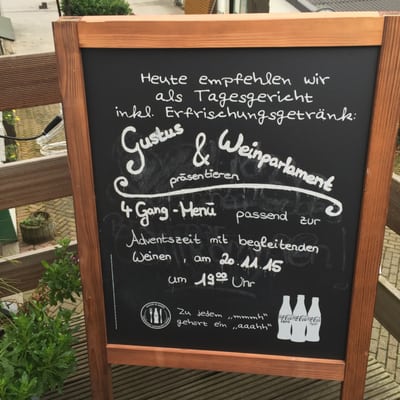 Heute empfehlen wir
als Tagesgericht
inkl. Erfrischungsgetränk:
Gustus & Weinparlament
präsentieren
4 Gang-Menü passend zur
Adventszeit mit begleitenden
Weinen, am 20.11.15
um 19⁰⁰ Uhr
Zu jedem „mmmh"
gehört ein „aaahh"